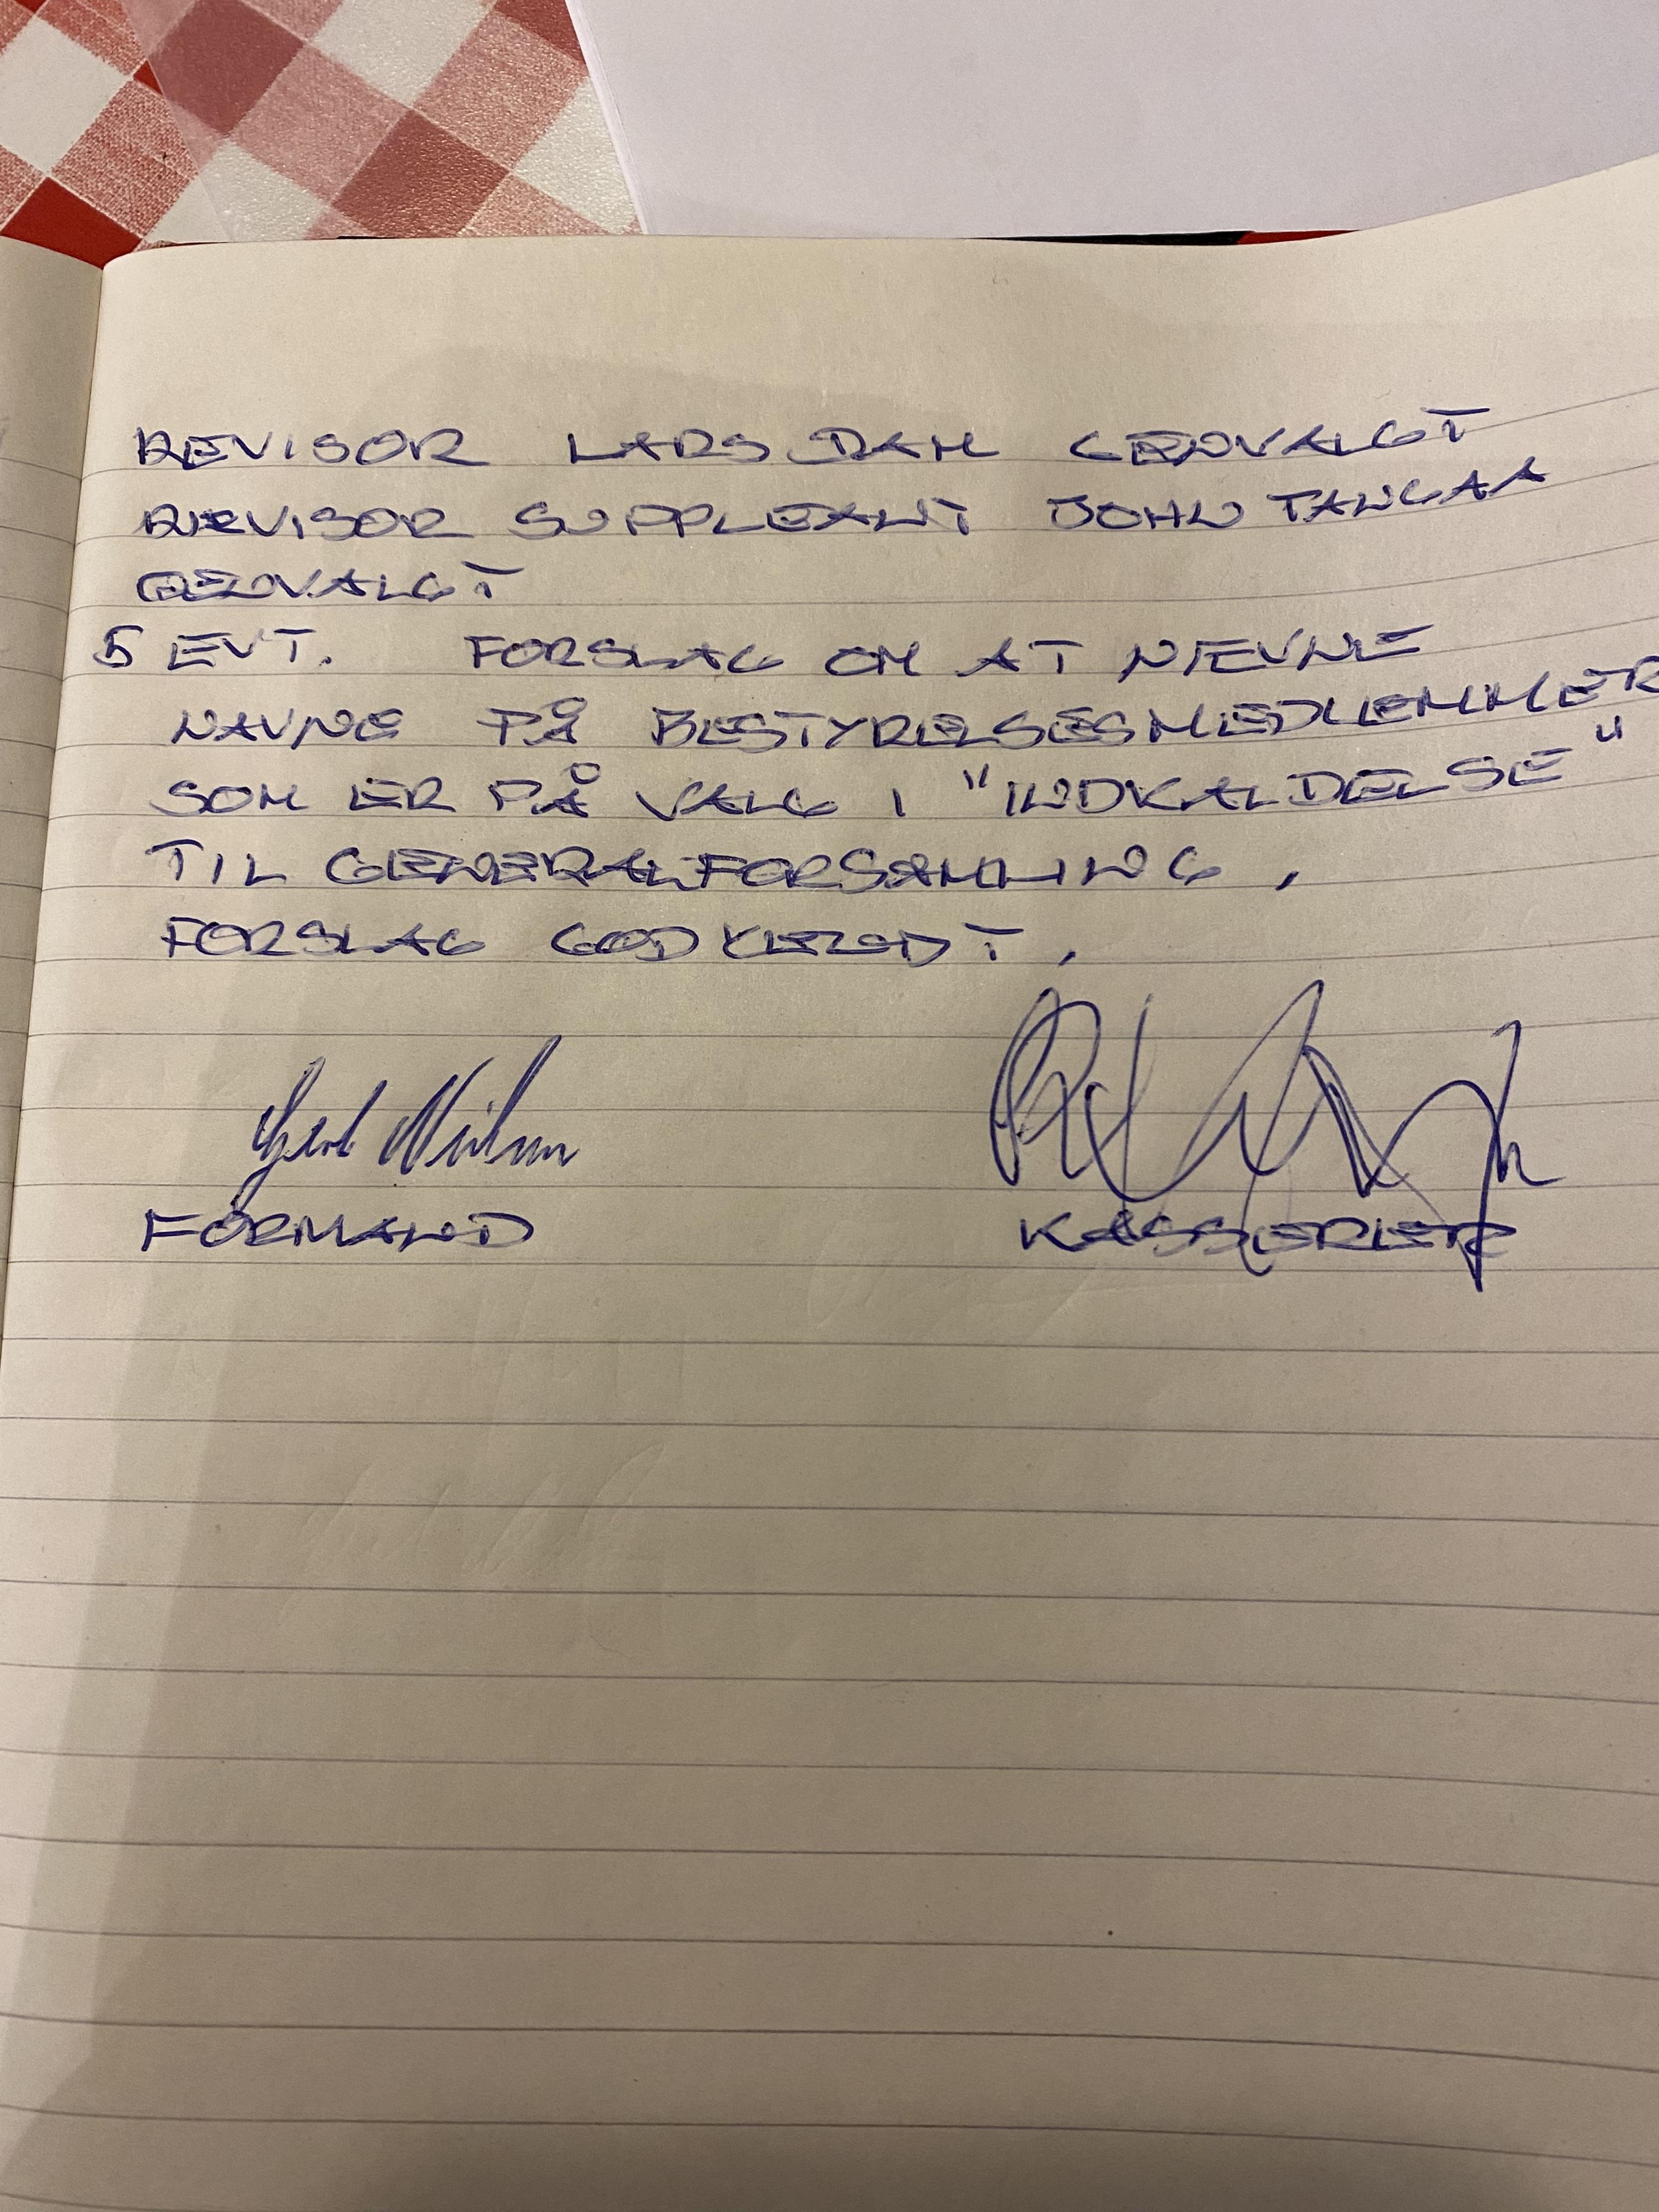 REVISOR LARS DAM GENVALGT
REVISOR SUPPLEANT JOHN TANGAA
GENVALGT
5 EVT. FORSLAG OM AT NÆVNE
NAVNE PÅ BESTYRELSESMEDLEMMER
SOM ER PÅ VALG I "INDKALDELSE"
TIL GENERALFORSAMLING,
FORSLAG GODKENDT,
Gert Nielsen
FORMAND KASSERER